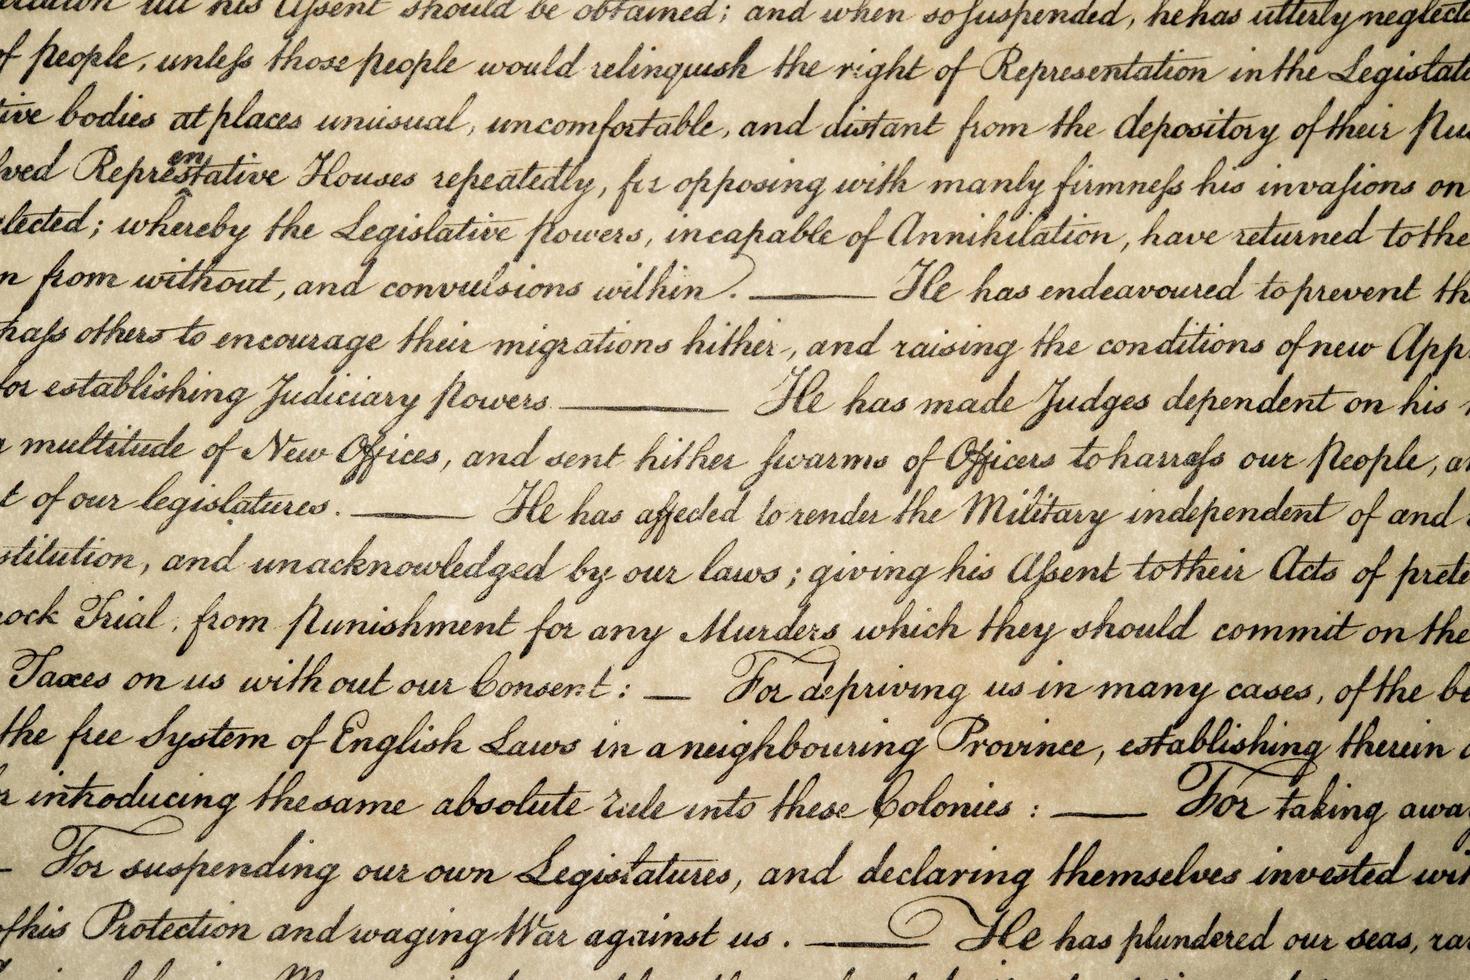 till his Aſsent should be obtained; and when so suspended, he has utterly
of people, unleſs those people would relinquish the right of Representation in the
bodies at places unusual, uncomfortable, and distant from the depository of their
Representative Houses repeatedly, for opposing with manly firmneſs his invaſions on
whereby the Legislative powers, incapable of Annihilation, have returned to the
from without, and convulsions within. — He has endeavoured to prevent
others to encourage their migrations hither, and raising the conditions of new
for establishing Judiciary powers — He has made Judges dependent on his
multitude of New Offices, and sent hither ſwarms of Officers to harraſs our People,
of our legislatures. — He has affected to render the Military independent of and
and unacknowledged by our laws; giving his Aſsent to their Acts of
Trial, from punishment for any Murders which they should commit on the
Taxes on us without our Consent: — For depriving us in many cases, of the
the free System of English Laws in a neighbouring Province, establishing therein
introducing the same absolute rule into these Colonies: — For taking
— For suspending our own Legislatures, and declaring themselves invested
of his Protection and waging War against us. — He has plundered our seas,